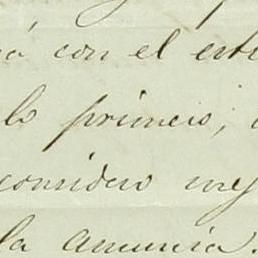 con el este
lo primero,
considero mej
la anuncia.